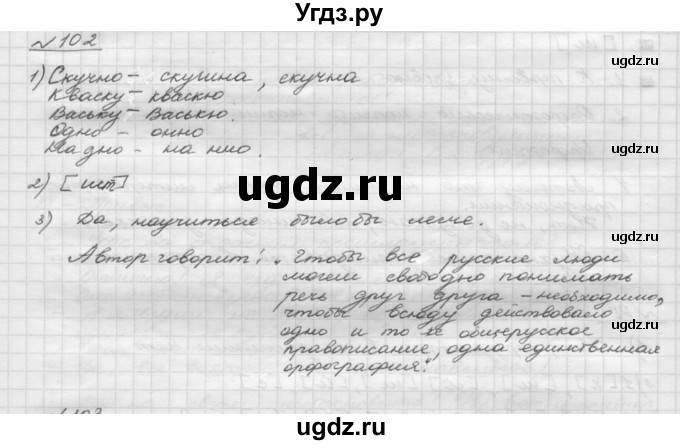 Угдз.ру
№102
ugdz.ru
1) Скучно – скушна, скучна
Кваску – кваскю
Ваську – Васькю.
ugdz.ru
Одно – онно
На дно – на нно.
ugdz.ru
2) [шт]
ugdz.ru
3) Да, научиться было бы легче.
Автор говорит: "Чтобы все русские люди
могли свободно понимать
речь друг друга – необходимо,
чтобы всюду действовало
ugdz.ru
одно и то же общерусское
правописание, одна единственная
орфография".
ugdz.ru
Угдз.ру